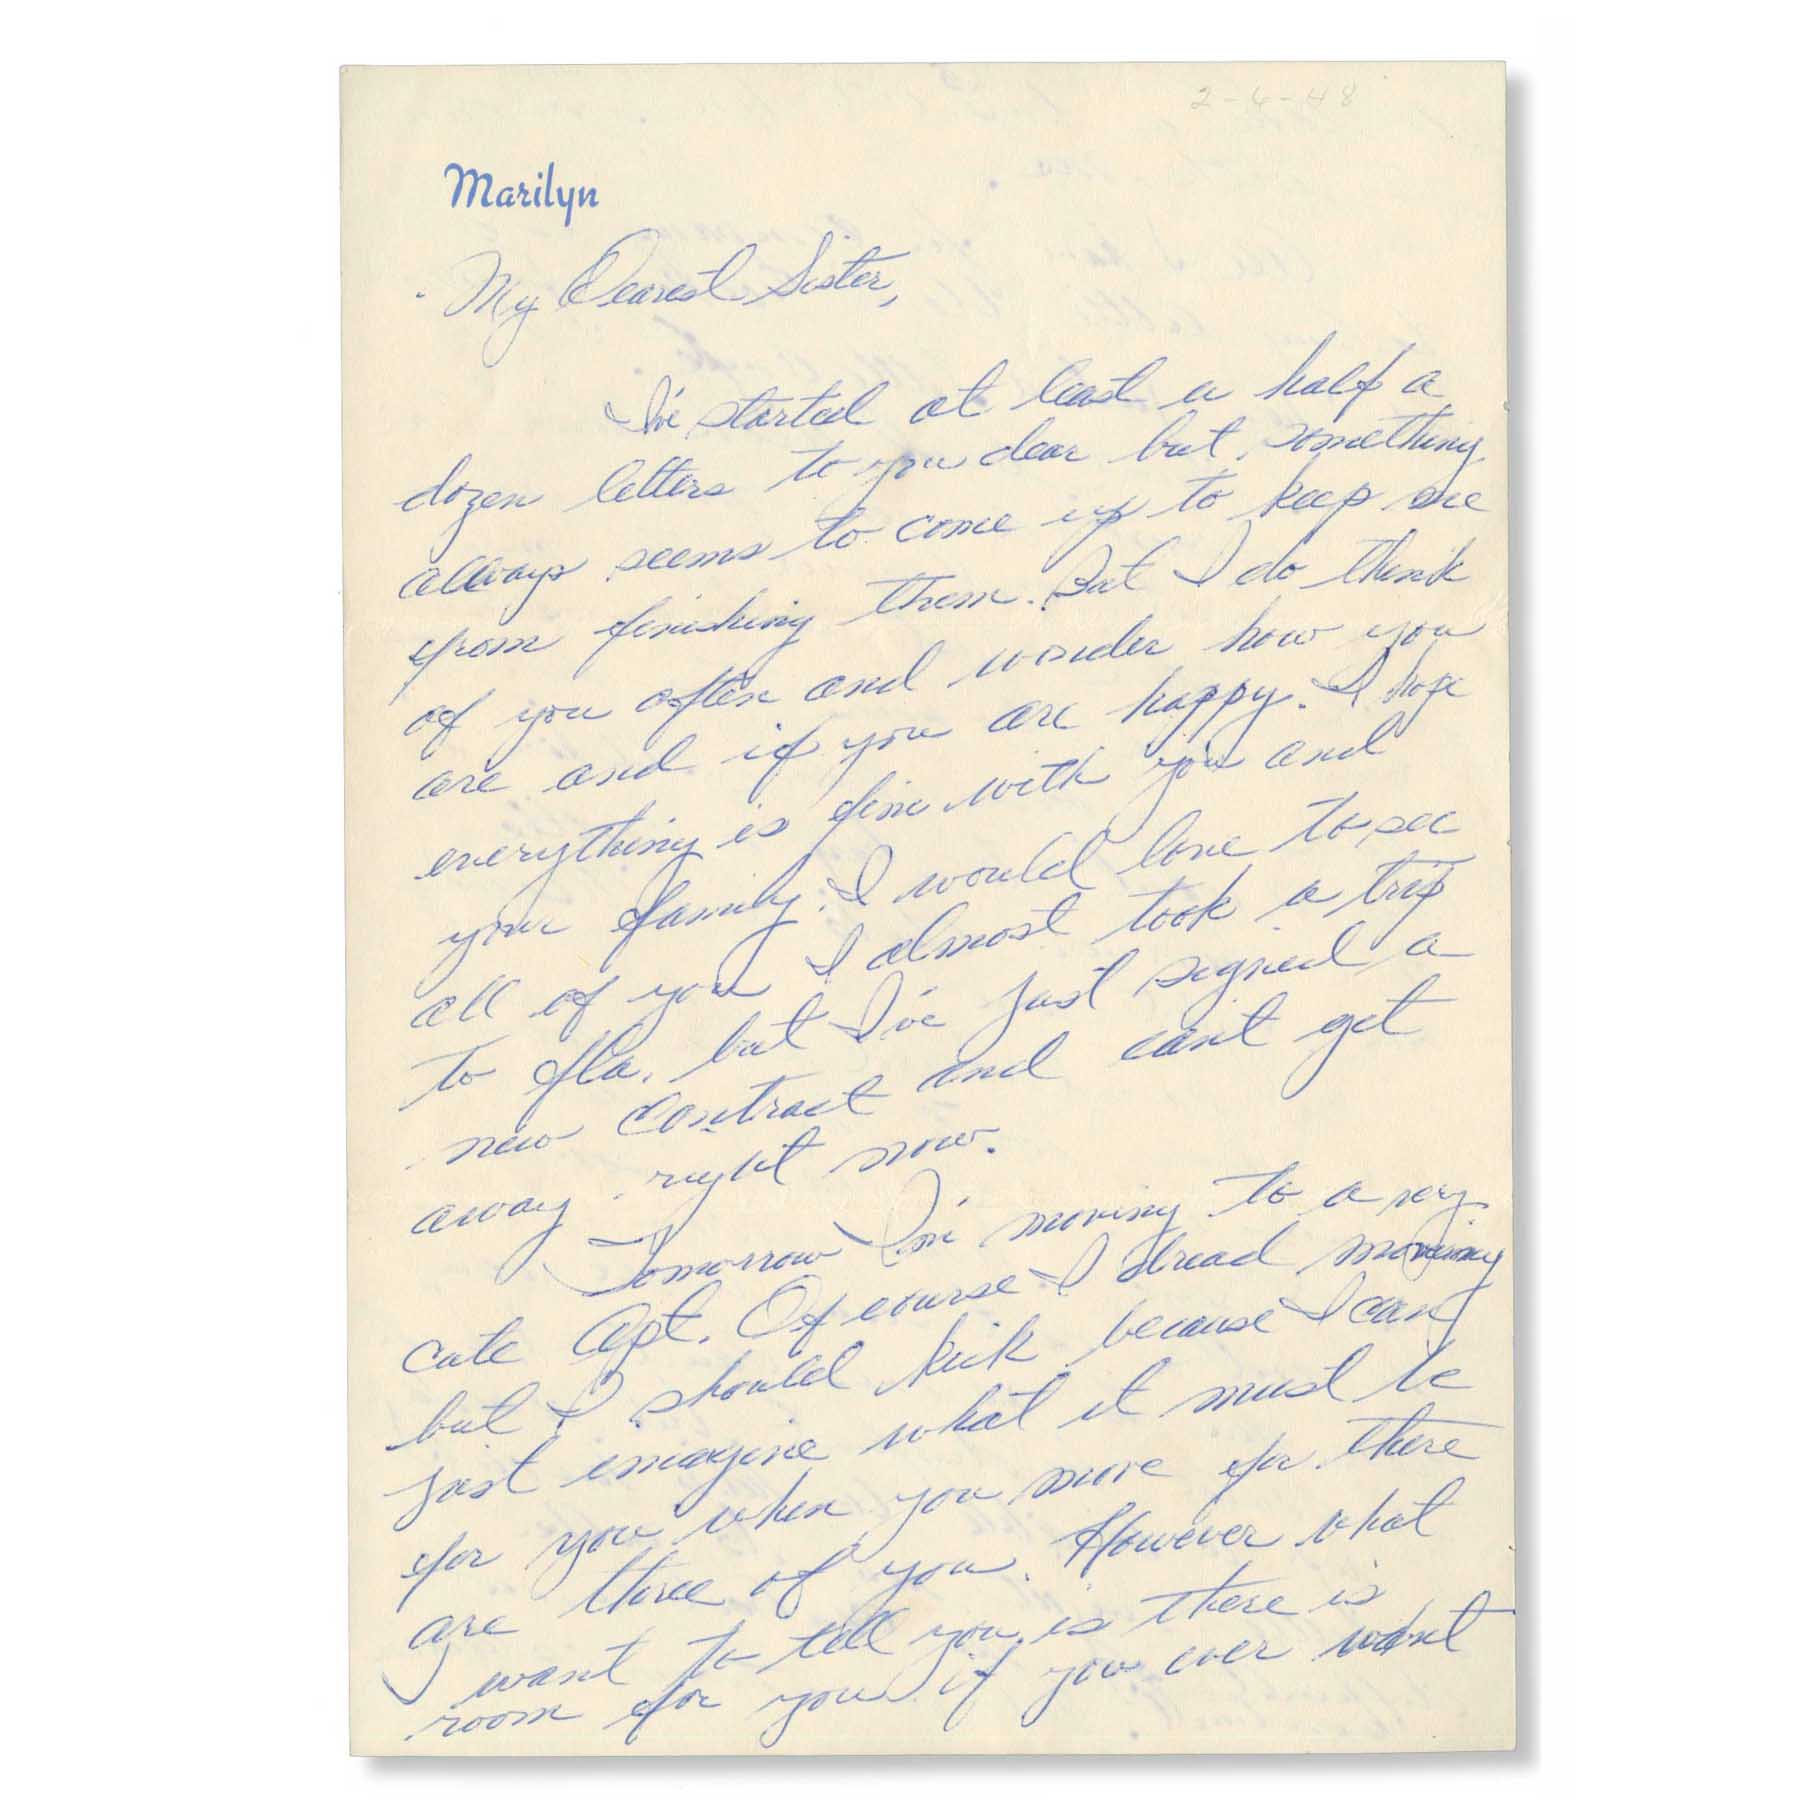 2-6-48
Marilyn
My Dearest Sister,
I've started at least a half a
dozen letters to you dear but something
always seems to come up to keep me
from finishing them. But I do think
of you often and wonder how you
are and if you are happy. I hope
everything is fine with you and
your family. I would love to see
all of you I almost took a trip
to Fla. but I've just signed a
new contract and can't get
away right now.
Tomorrow I'm moving to a very
cute Apt. Of course I dread moving
but I should kick because I can
just imagine what it must be
for you when you move for there
are three of you. However what
I want to tell you is there is
room for you if you ever want